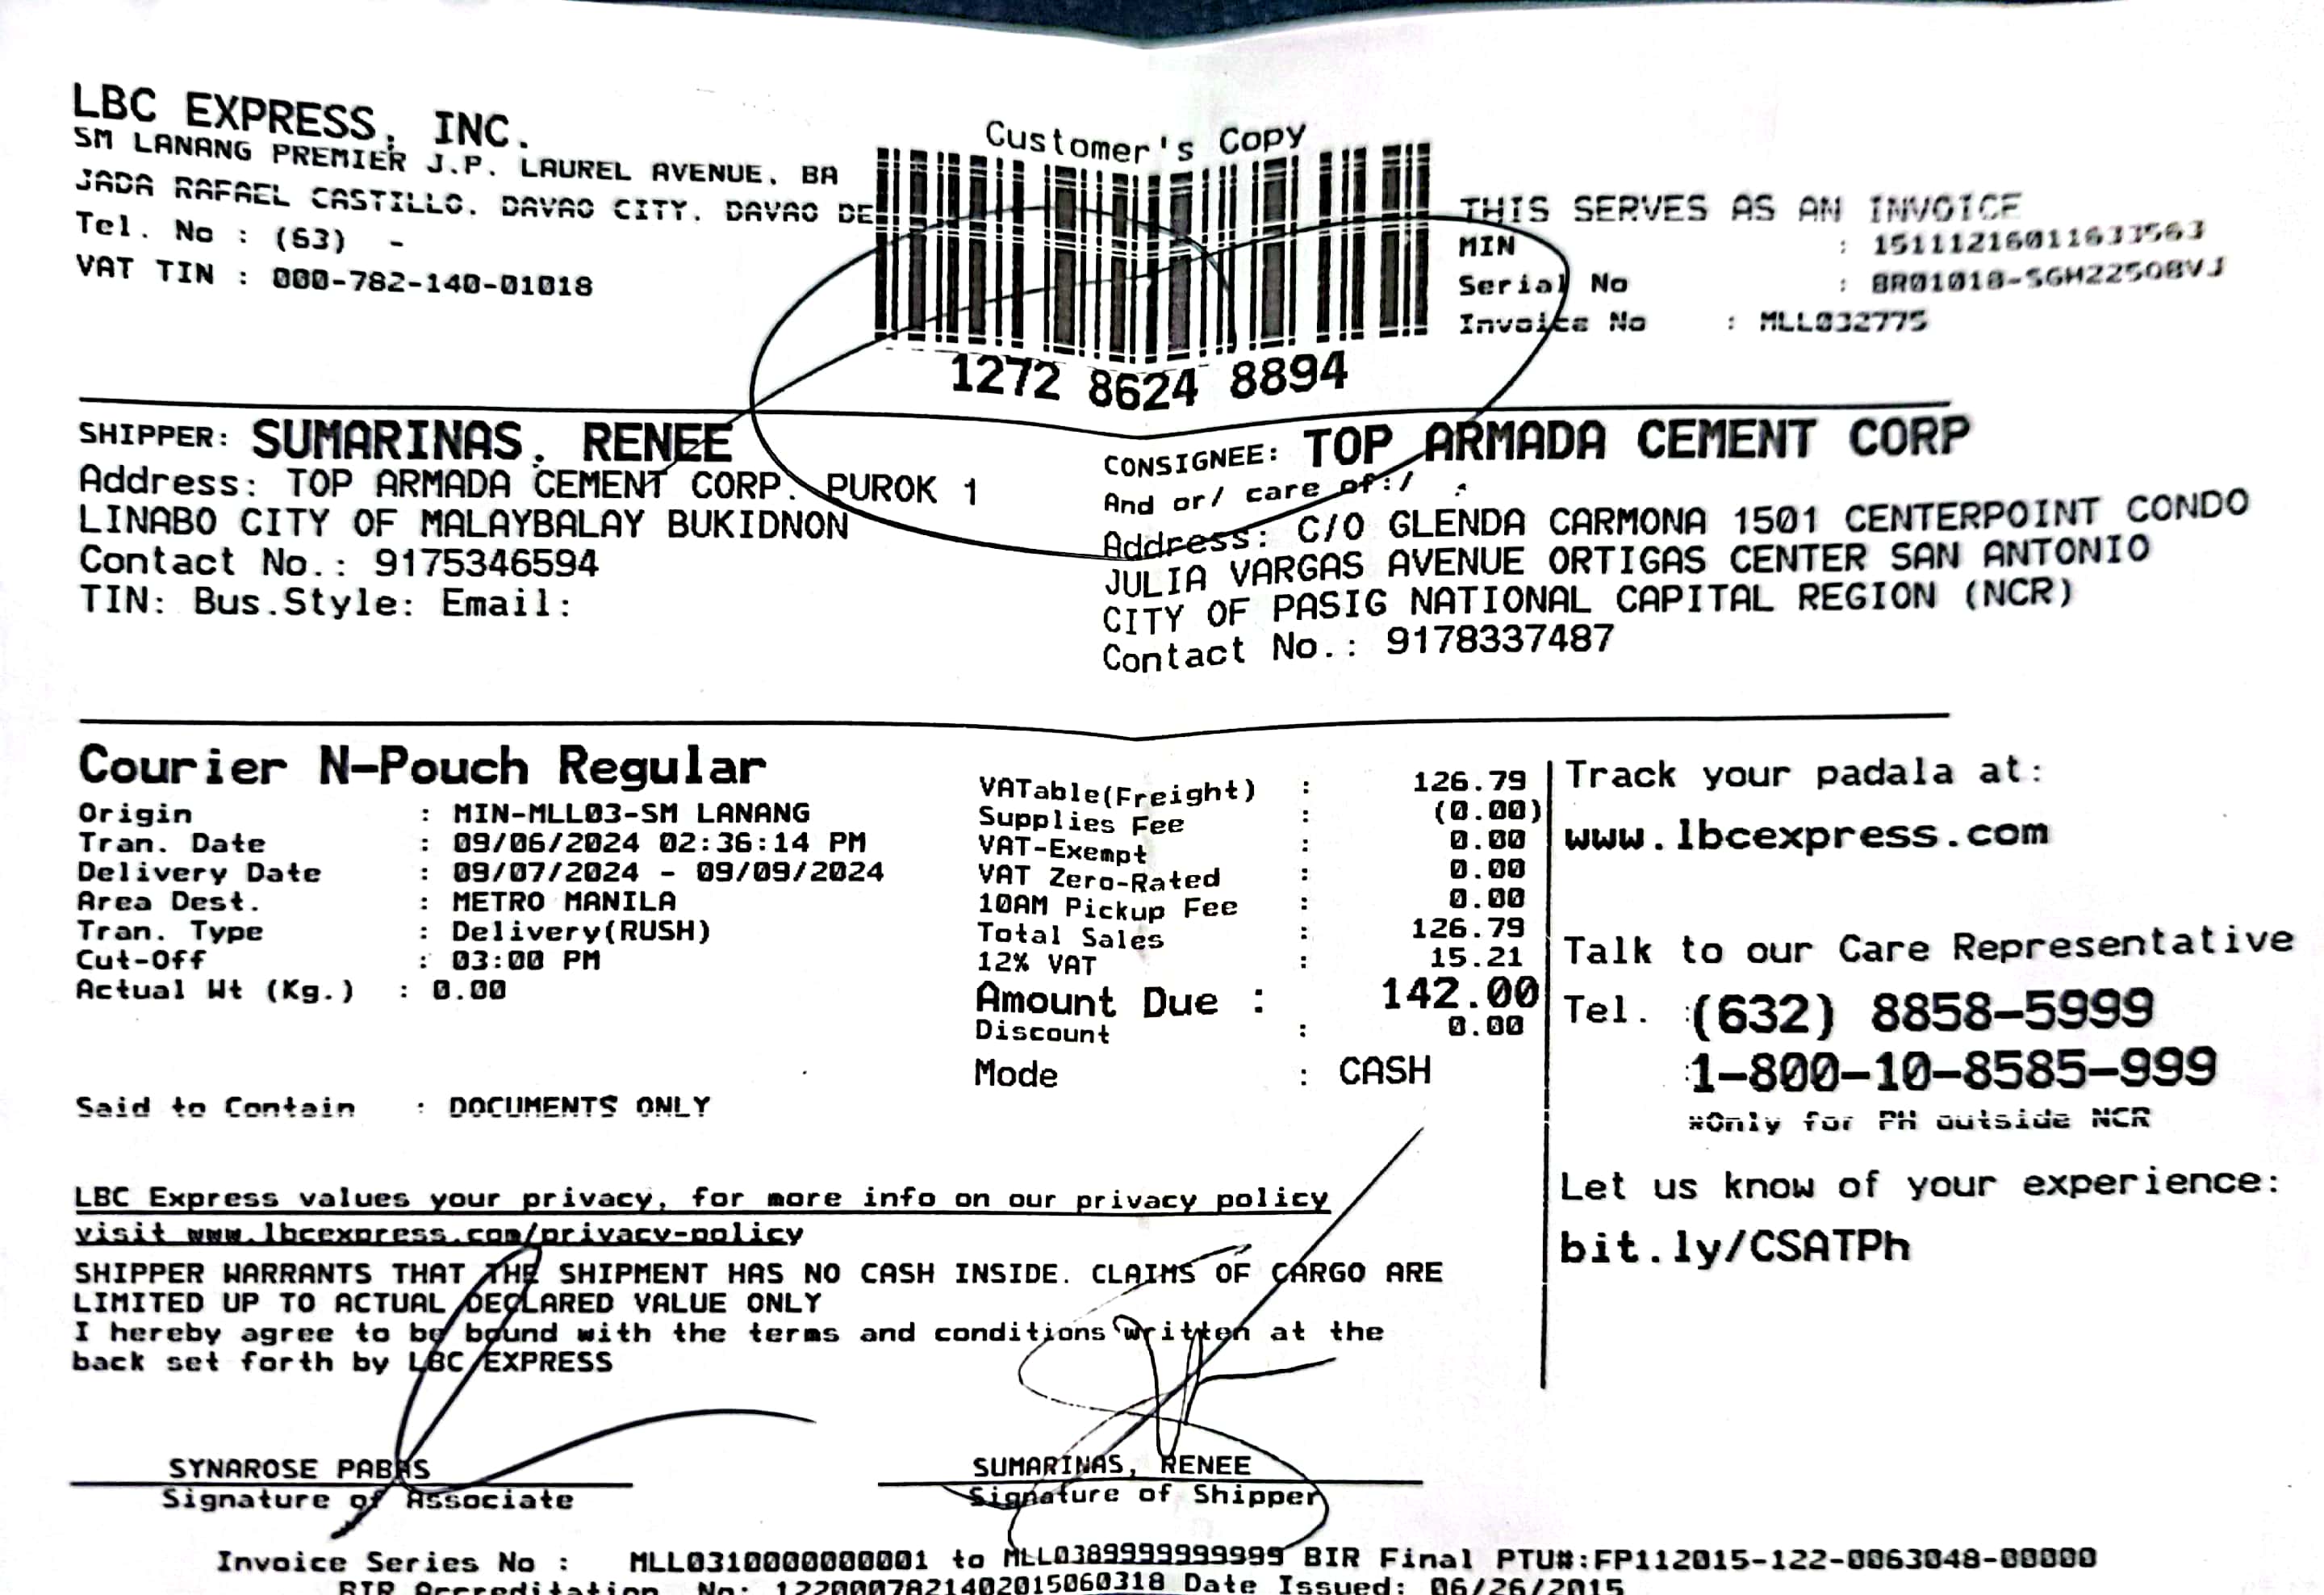 LBC EXPRESS, INC.
SM LANANG PREMIER J.P. LAUREL AVENUE, BA
JADA RAFAEL CASTILLO, DAVAO CITY, DAVAO DE
Tel. No : (63) -
VAT TIN : 000-782-140-01018
Customer's Copy
1272 8624 8894
THIS SERVES AS AN INVOICE
MIN : 15111216011633563
Serial No : BR01018-SGH225QBVJ
Invoice No : MLL032775
SHIPPER: SUMARINAS, RENEE
Address: TOP ARMADA CEMENT CORP. PUROK 1
LINABO CITY OF MALAYBALAY BUKIDNON
Contact No.: 9175346594
TIN: Bus.Style: Email:
CONSIGNEE: TOP ARMADA CEMENT CORP
And or/ care of:/ .
Address: C/O GLENDA CARMONA 1501 CENTERPOINT CONDO
JULIA VARGAS AVENUE ORTIGAS CENTER SAN ANTONIO
CITY OF PASIG NATIONAL CAPITAL REGION (NCR)
Contact No.: 9178337487
Courier N-Pouch Regular
Origin : MIN-MLL03-SM LANANG
Tran. Date : 09/06/2024 02:36:14 PM
Delivery Date : 09/07/2024 - 09/09/2024
Area Dest. : METRO MANILA
Tran. Type : Delivery(RUSH)
Cut-Off : 03:00 PM
Actual Wt (Kg.) : 0.00
Said to Contain : DOCUMENTS ONLY
VATable(Freight) : 126.79
Supplies Fee : (0.00)
VAT-Exempt : 0.00
VAT Zero-Rated : 0.00
10AM Pickup Fee : 0.00
Total Sales : 126.79
12% VAT : 15.21
Amount Due : 142.00
Discount : 0.00
Mode : CASH
Track your padala at:
www.lbcexpress.com
Talk to our Care Representative
Tel. :(632) 8858-5999
:1-800-10-8585-999
*Only for PH outside NCR
Let us know of your experience:
bit.ly/CSATPh
LBC Express values your privacy, for more info on our privacy policy
visit www.lbcexpress.com/privacy-policy
SHIPPER WARRANTS THAT THE SHIPMENT HAS NO CASH INSIDE. CLAIMS OF CARGO ARE
LIMITED UP TO ACTUAL DECLARED VALUE ONLY
I hereby agree to be bound with the terms and conditions written at the
back set forth by LBC EXPRESS
SYNAROSE PABAS
Signature of Associate
SUMARINAS, RENEE
Signature of Shipper
Invoice Series No : MLL0310000000001 to MLL0389999999999 BIR Final PTU#:FP112015-122-0063048-00000
BIR Accreditation No: 1220007821402015060318 Date Issued: 06/26/2015